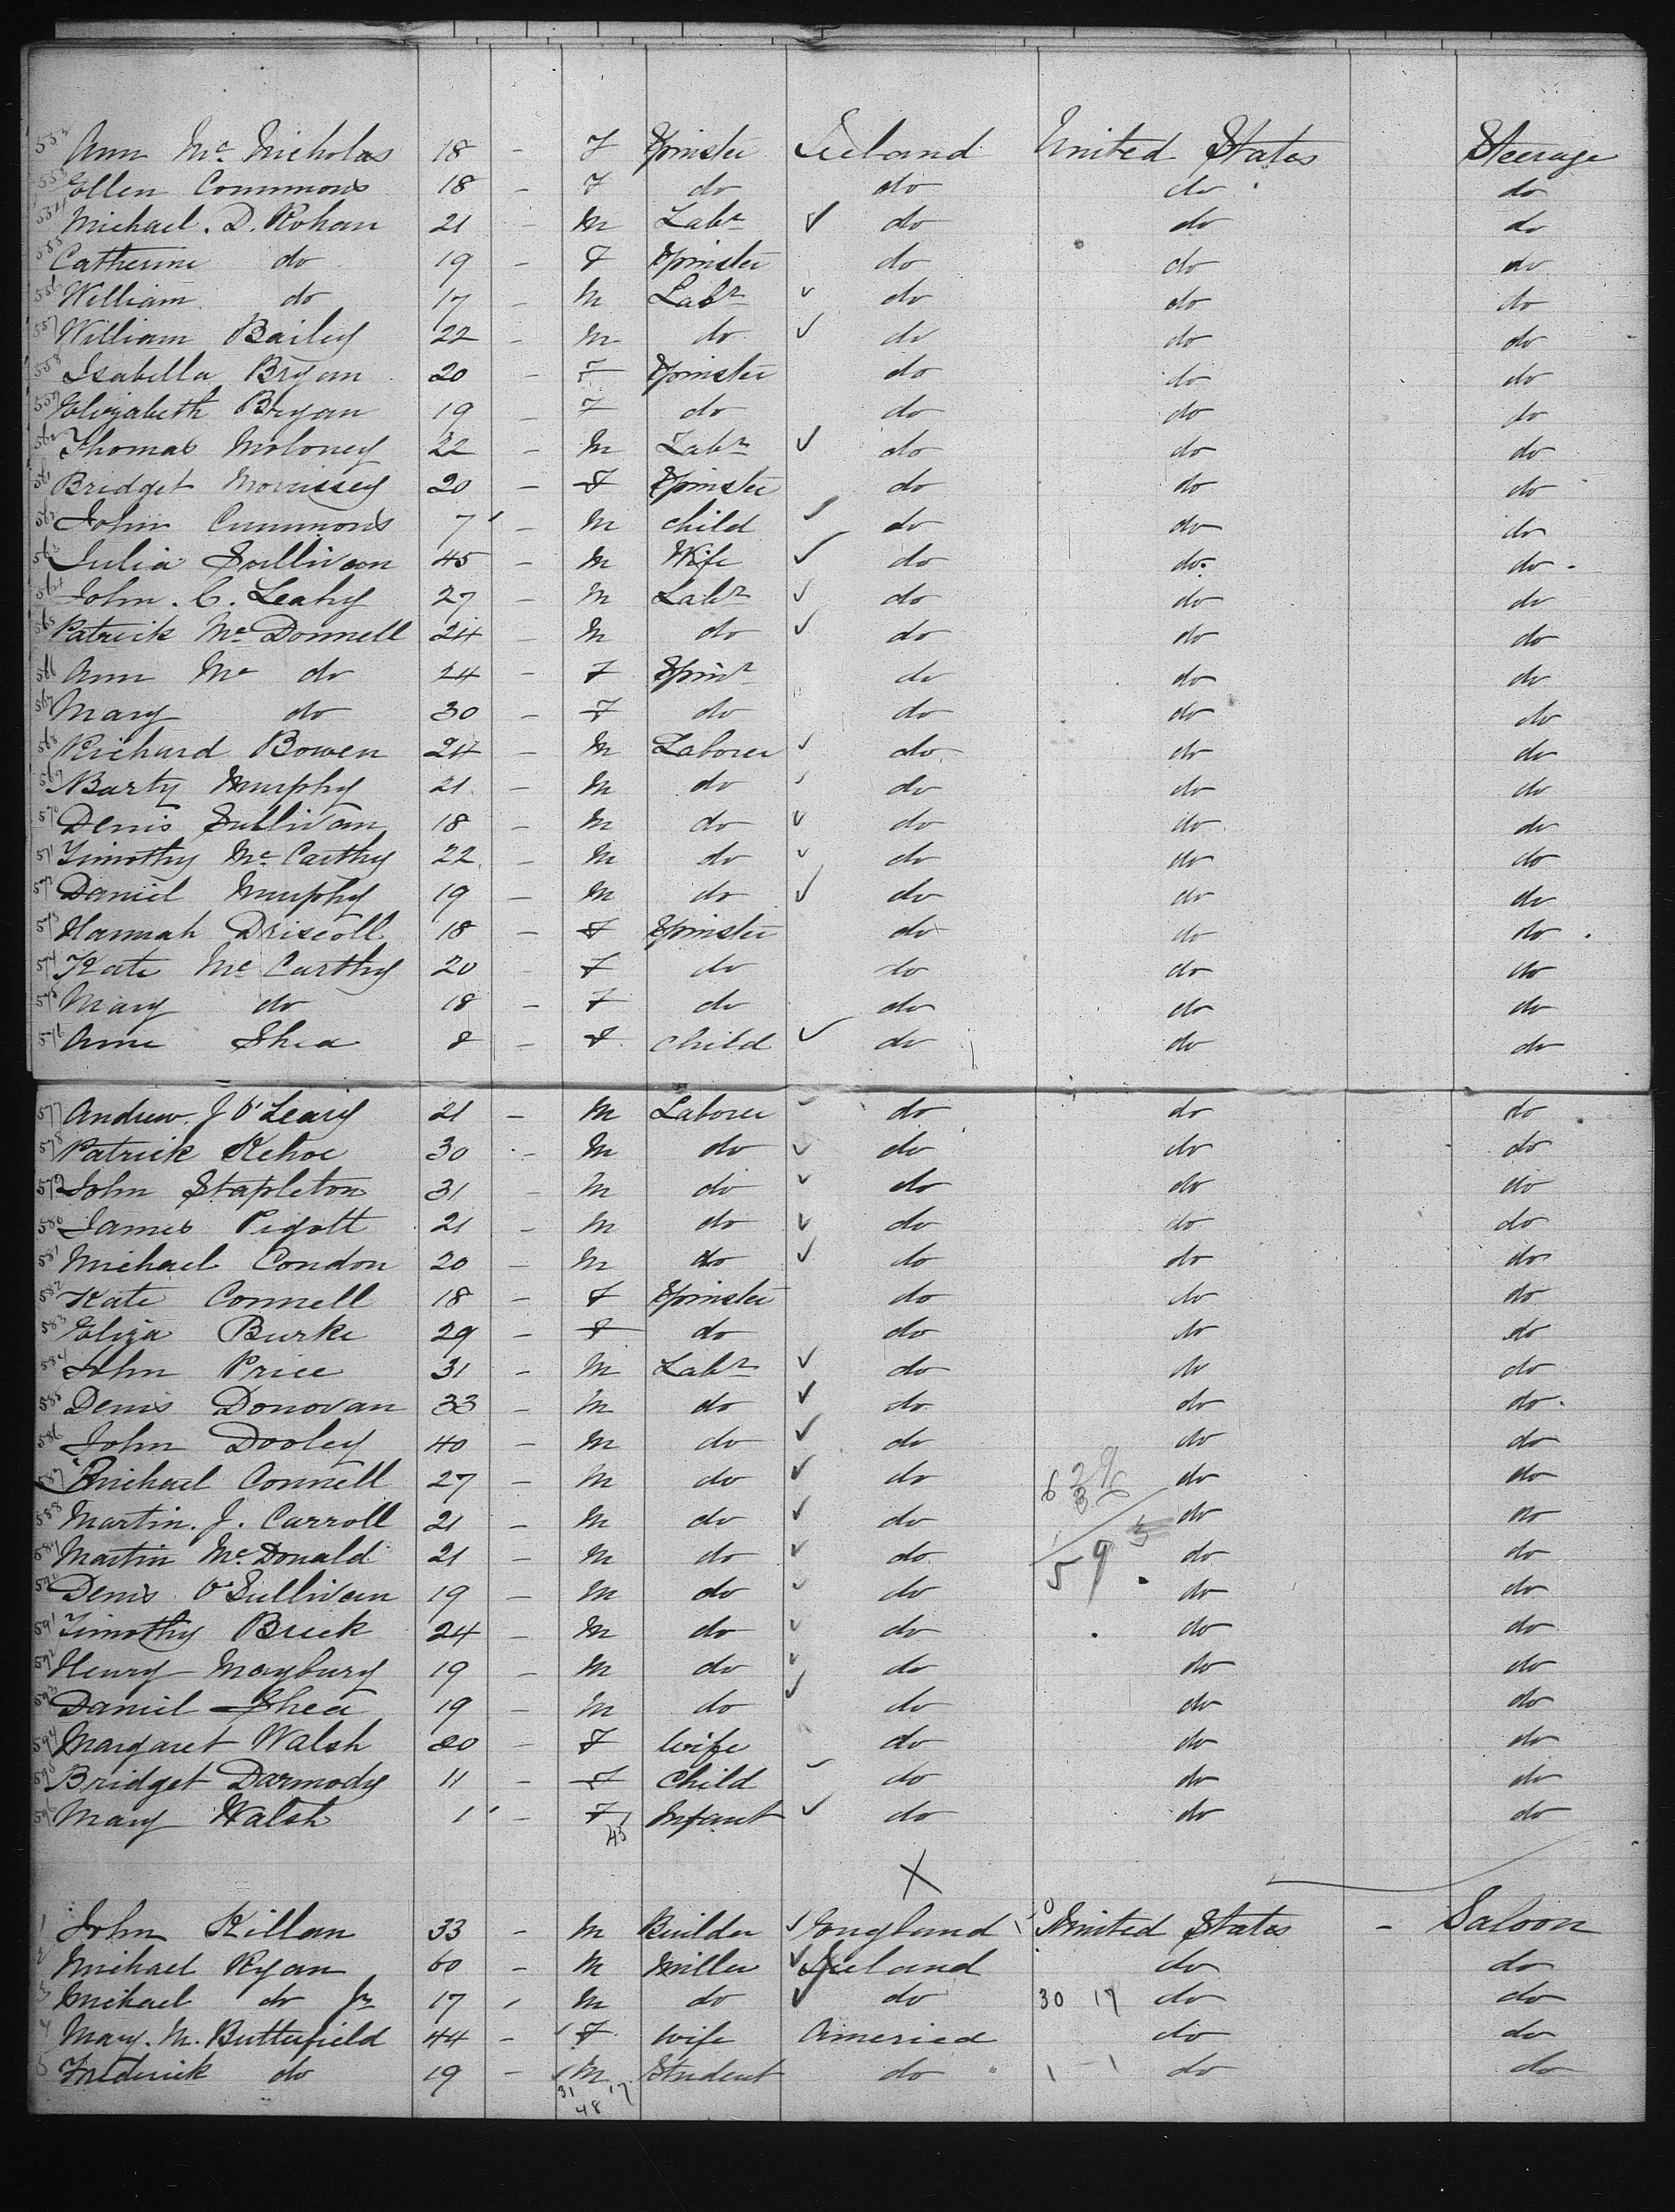 552 Ann Mc Nicholas 18 - F Spinster Ireland United States Steerage
553 Ellen Commons 18 - F do do do do
554 Michael. D. Rohan 21 - M Labr ✓ do do do
555 Catherine do 19 - F Spinster do do do
556 William do 17 - M Labr ✓ do do do
557 William Bailey 22 - M do ✓ do do do
558 Isabella Bryan 20 - F Spinster do do do
559 Elizabeth Bryan 19 - F do do do do
560 Thomas Moloney 22 - M Labr ✓ do do do
561 Bridget Morrissey 20 - F Spinster do do do
562 John Cummons 7 - M child ✓ do do do
563 Julia Sullivan 45 - M Wife ✓ do do do
564 John. C. Leahy 27 - M Labr ✓ do do do
565 Patrick Mc Donnell 24 - M do ✓ do do do
566 Ann Mc do 24 - F Spinr do do do
567 Mary do 30 - F do do do do
568 Richard Bowen 24 - M Laborer ✓ do do do
569 Barty Murphy 21 - M do ✓ do do do
570 Denis Sullivan 18 - M do ✓ do do do
571 Timothy Mc Carthy 22 - M do ✓ do do do
572 Daniel Murphy 19 - M do ✓ do do do
573 Hannah Driscoll 18 - F Spinster do do do
574 Kate Mc Carthy 20 - F do do do do
575 Mary do 18 - F do do do do
576 Anne Shea 8 - F Child ✓ do do do
577 Andrew. J O'Leary 21 - M Laborer ✓ do do do
578 Patrick Kehoe 30 - M do ✓ do do do
579 John Stapleton 31 - M do ✓ do do do
580 James Pigott 21 - M do ✓ do do do
581 Michael Condon 20 - M do ✓ do do do
582 Kate Connell 18 - F Spinster do do do
583 Eliza Burke 29 - F do do do do
584 John Price 31 - M Labr ✓ do do do
585 Denis Donovan 33 - M do ✓ do do do
586 John Dooley 40 - M do ✓ do do do
587 Michael Connell 27 - M do ✓ do do do
588 Martin. J. Carroll 21 - M do ✓ do do do
589 Martin Mc Donald 21 - M do ✓ do 59 do do
590 Denis O'Sullivan 19 - M do ✓ do do do
591 Timothy Brick 24 - M do ✓ do do do
592 Henry Maybury 19 - M do ✓ do do do
593 Daniel Shea 19 - M do ✓ do do do
594 Margaret Walsh 20 - F Wife do do do
595 Bridget Darmody 11 - F Child ✓ do do do
596 Mary Walsh 1 - F Infant ✓ do do do
45
X
1 John Killan 33 - M Builder ✓ England United States - Saloon
2 Michael Ryan 60 - M Miller ✓ Ireland do do
3 Michael do Jr 17 M do ✓ do 30 17 do do
4 Mary. M. Butterfield 44 - F Wife America do do
5 Frederick do 19 - M Student do 1 - 1 do do
31 17
48